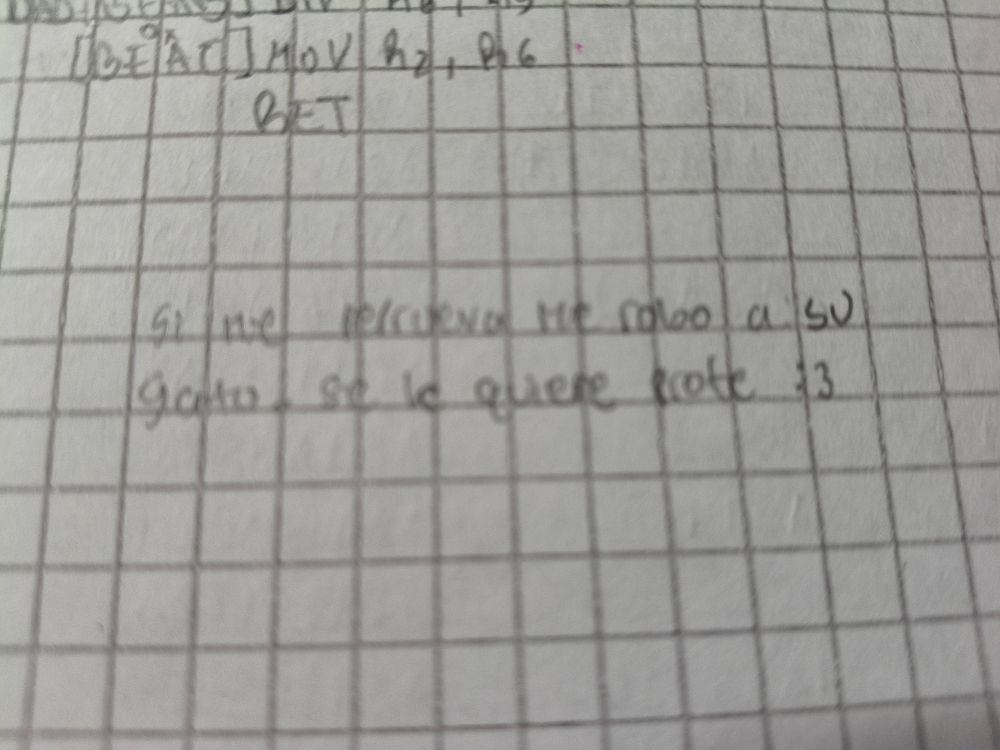 [BEAI] MOV R2, R6
RET
Si me reprueva me robo a su
gato se le quiere profe :3